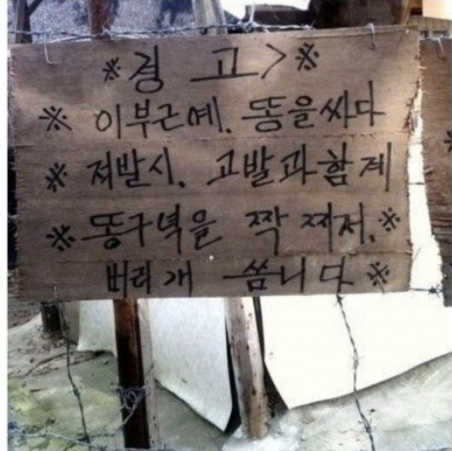 ※경 고>※
※ 이부근에. 똥을싸다
※ 저발시. 고발과함계
※ 똥구녁을 짝 찌저.※
버리개 씀니다※